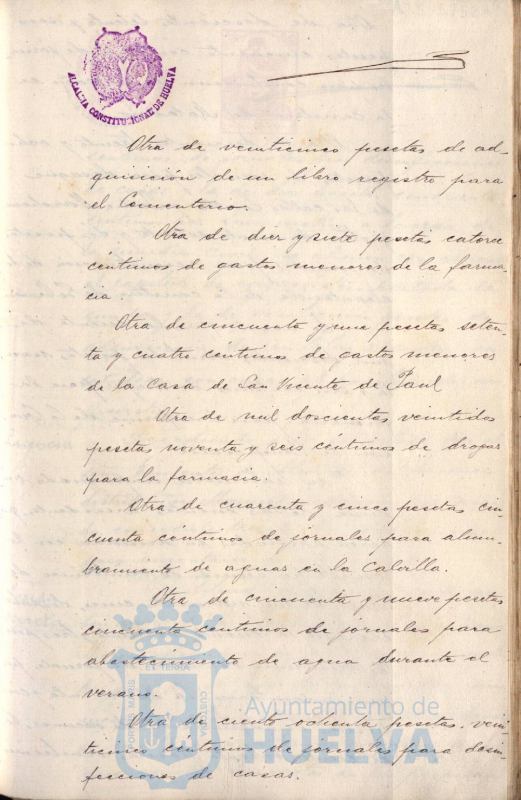 ALCALDIA CONSTITUCIONAL DE HUELVA
Otra de veinticinco pesetas de ad-
quisición de un libro registro para
el Cementerio.
Otra de diez y siete pesetas catorce
céntimos de gastos menores de la farma-
cia.
Otra de cincuenta y una pesetas seten-
ta y cuatro céntimos de gastos menores
de la Casa de San Vicente de Paul
Otra de mil doscientas veintidos
pesetas noventa y seis céntimos de drogas
para la farmacia.
Otra de cuarenta y cinco pesetas cin-
cuenta céntimos de jornales para alum-
bramiento de aguas en la Calvilla.
Otra de cincuenta y nueve pesetas
cincuenta céntimos de jornales para
abastecimiento de agua durante el
verano.
Otra de ciento ochenta pesetas vein-
ticinco céntimos de jornales para desin-
fecciones de casas.
PORTUS MARIS ET TERRAE CUSTODIA
Ayuntamiento de
HUELVA